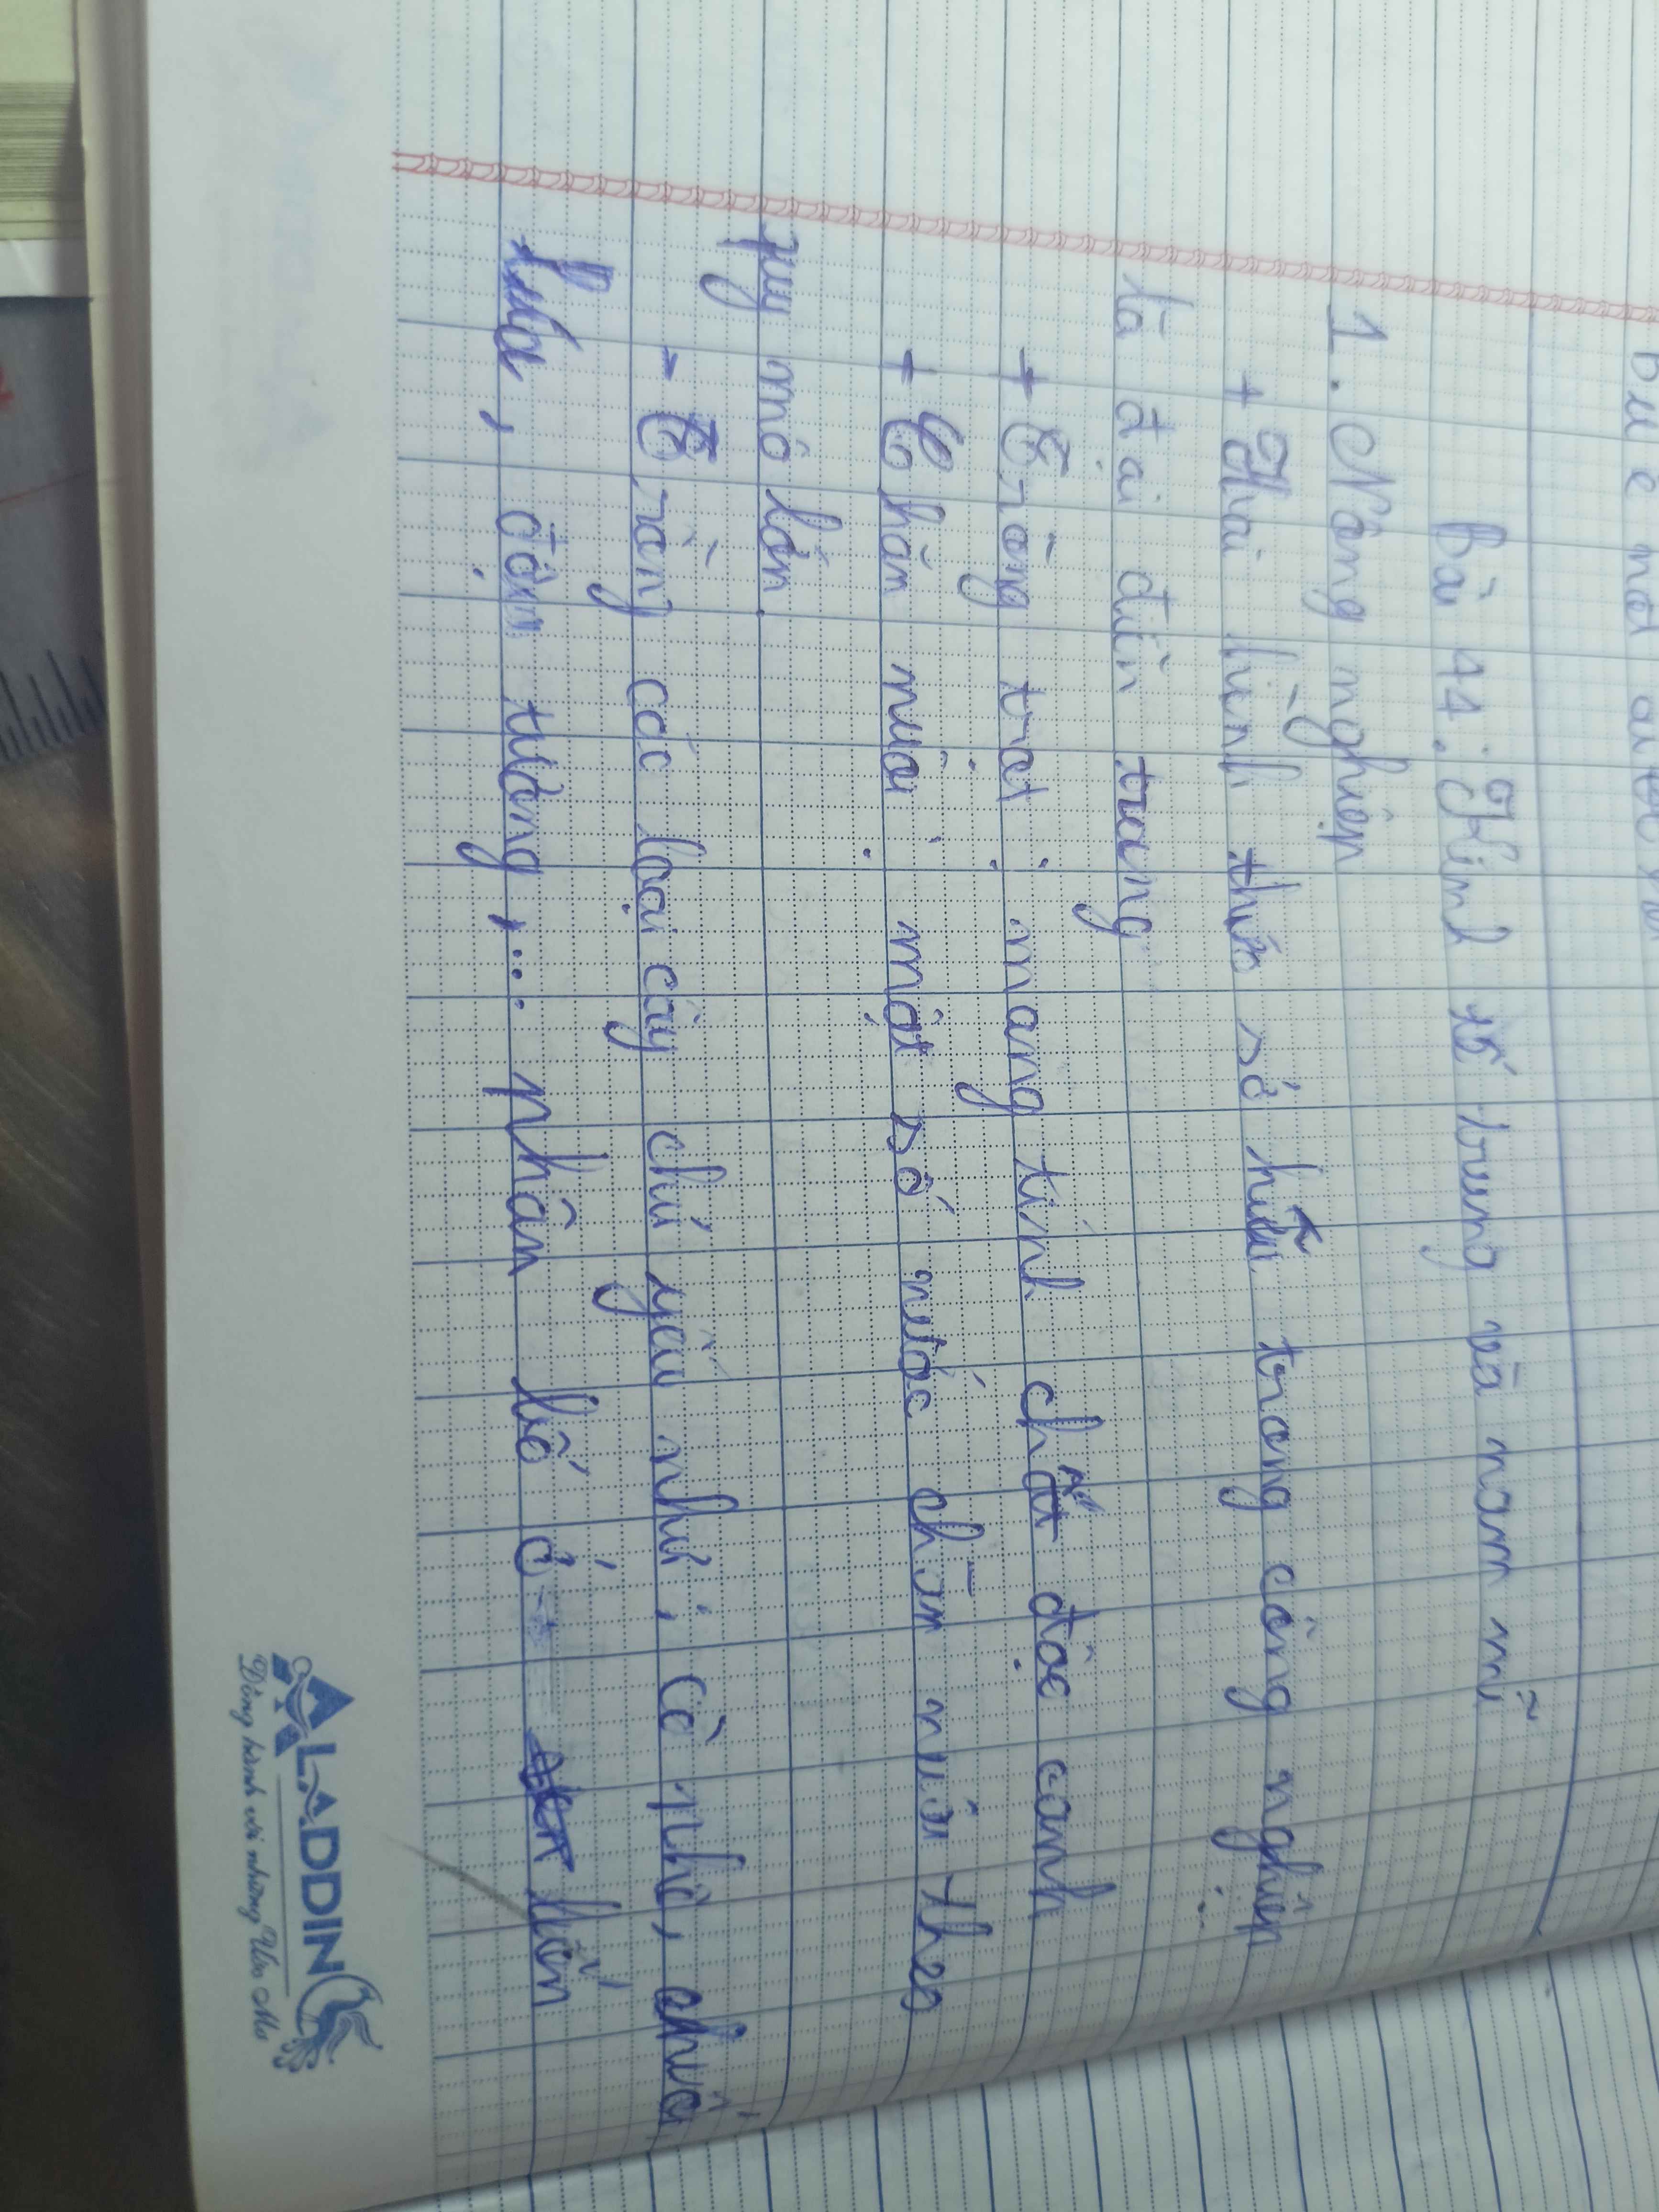 Bài 44: Kinh tế trung và nam mĩ
1. Nông nghiệp
+ Hai hình thức sở hữu trong công nghiệp:
là đại điền trang
+ Trồng trọt: mang tính chất độc canh
+ Chăn nuôi: một số nước chăn nuôi theo
quy mô lớn.
- Trồng các loại cây chủ yếu như: Cà phê, chuối,
lúa, đậu tương,... phân bố ở lớn
ALADDIN
Đồng hành với những Ước Mơ